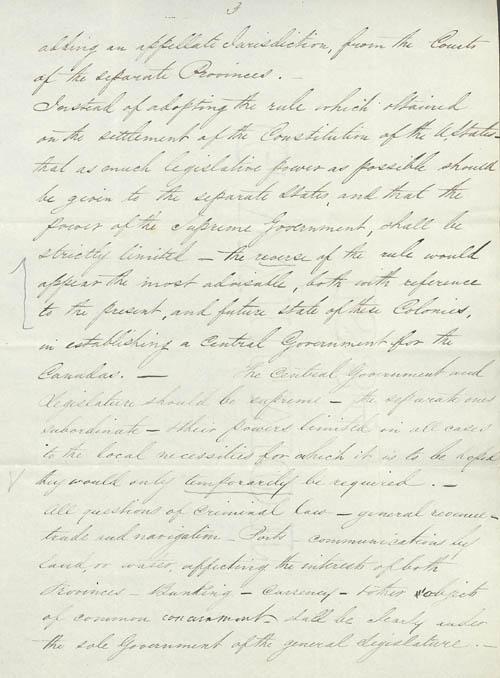 3
adding an appellate Jurisdiction, from the Courts
of the separate Provinces. —
Instead of adopting the rule which obtained
on the settlement of the Constitution of the U States—
that as much legislative power as possible should
be given to the separate States, and that the
power of the Supreme Government, shall be
strictly limited — the reverse of the rule would
appear the most advisable, both with reference
to the present, and future state of these Colonies,
in establishing a Central Government for the
Canadas. — The Central Government and
Legislature should be supreme — the separate ones
subordinate — their powers limited in all cases
to the local necessities for which it is to be hoped
they would only temporarily be required. —
All questions of Criminal law — general revenue —
trade and navigation — Ports — communications by
land or water, affecting the interests of both
Provinces — Banking — Currency — & other objects
of common concernment — shall be clearly under
the sole Government of the general Legislature. —